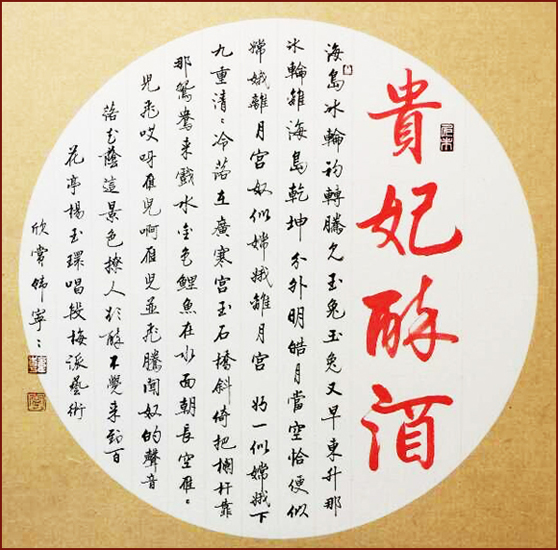 貴妃醉酒
海島冰輪初轉騰見玉兔玉兔又早東升那
冰輪離海島乾坤分外明皓月當空恰便似
嫦娥離月宮奴似嫦娥離月宮 好一似嫦娥下
九重清〻冷落在廣寒宮玉石橋斜倚把欄杆靠
那鴛鴦來戲水金色鯉魚在水面朝長空雁〻
兒飛哎呀雁兒啊雁兒並飛騰聞奴的聲音
落花蔭這景色撩人欲醉不覺來到百
花亭楊玉環唱段梅派藝術
欣賞韩寧〻